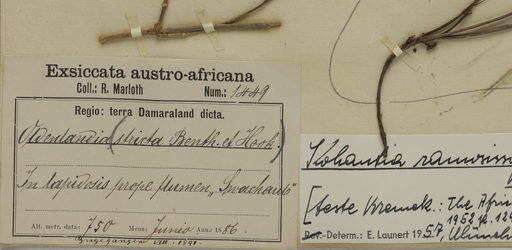 Exsiccata austro-africana
Coll.: R. Marloth Num.: 1449
Regio: terra Damaraland dicta.
Oldenlandia (stricta Benth. et Hook.)
In lapidosis prope flumen „Swachaub"
Alt. metr. data: 750 Mens: Junio Ann.: 1886.
Eingegangen VIII. 1890.
Kohautia ramosiss
[teste Bremek.: The Afri
1952 p. 12
Rev.-Determ.: E. Launert 1957,